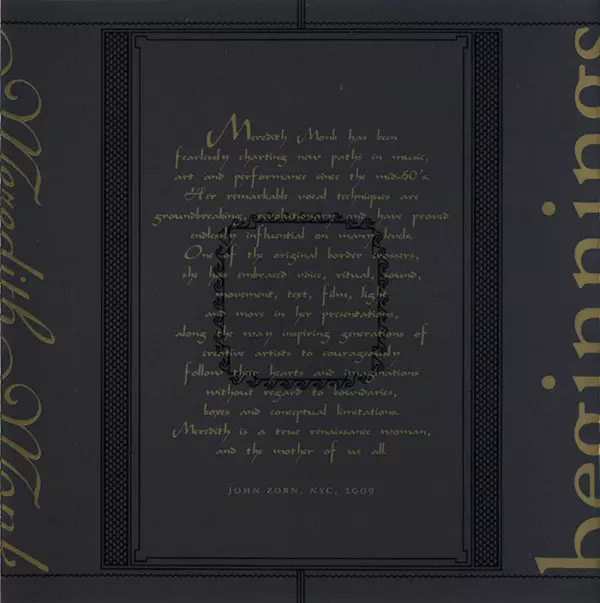 Meredith Monk
Meredith Monk has been
fearlessly charting new paths in music,
art and performance since the mid-60's.
Her remarkable vocal techniques are
groundbreaking, revolutionary and have proved
endlessly influential on many levels.
One of the original border crossers,
she has embraced voice, ritual, sound,
movement, text, film, light
and more in her presentations,
along the way inspiring generations of
creative artists to courageously
follow their hearts and imaginations
without regard to boundaries,
boxes and conceptual limitations.
Meredith is a true renaissance woman,
and the mother of us all.
JOHN ZORN, NYC, 2009
beginnings